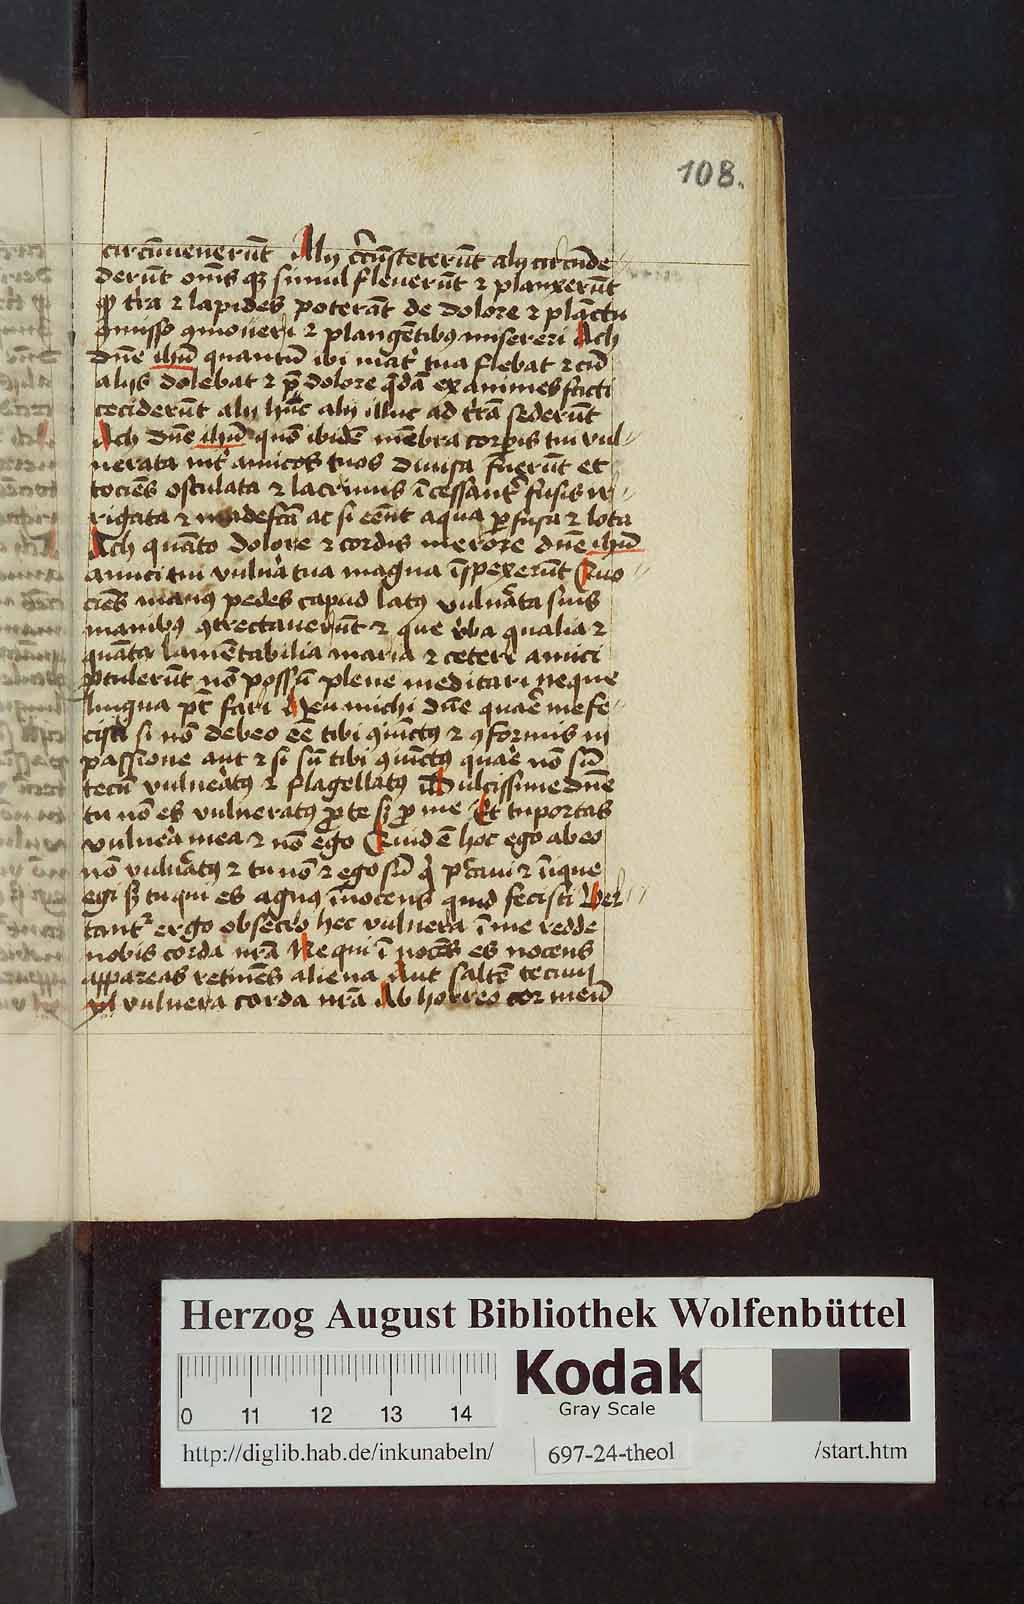 108.
circūuenerūt Alij c̄cūsteterūt alij circūde
derūt om̄s qȝ simul fleuerūt ⁊ planxerūt
ꝙ t̄ra ⁊ lapides poterāt de dolore ⁊ plāctu
ꝯmoueri ⁊ plangētibꝰ misereri Ach
dn̄e ihū quantū ibi mat̄ tua flebat ⁊ cū
alijs dolebat ⁊ p̄ dolore q̄dā exanimes fc̄ti
ceciderūt alij hūc alij illuc ad t̄rā sederūt
Ach dn̄e ihū quō ibidē mēbra corꝑis tui vul
nerata int̄ amicos tuos diuisa fuerūt et
tociēs osculata ⁊ lacrimis īcessant̄ fusis ir
rigata ⁊ madefc̄a ac si eēnt aqua ꝑfusa ⁊ lota
Ach quāto dolore ⁊ cordis merore dn̄e ihū
amici tui vulnā tua magna īspexerūt Quo
ciēs manꝰ pedes capud latꝰ vulnāta suis
manibꝰ ꝯtrectauerūt ⁊ que v̄ba qualia ⁊
quāta lamētabilia maria ⁊ ceteri amici
ꝓtulerūt nō possū plene meditari neque
lingua pt̄ fari Heu michi dn̄e quar̄e me fe
cisti si nō debeo eē tibi ꝯiūctꝰ ⁊ ꝯformis in
passione aut ⁊ si sū tibi ꝯiūctꝰ quar̄e nō sū
tecū vulner̄atꝰ ⁊ flagellatꝰ Dulcissime dn̄e
tu nō es vulneratꝰ ꝓ te sȝ ꝓ me Et tu portas
vulner̄a mea ⁊ nō ego Quid ē hoc ego abeo
nō vulnāᵗꝰ ⁊ tu nō ⁊ ego sū q̄ pc̄caui ⁊ īique
egi sȝ tu qui es agnꝰ īnocens quid fecisti Ver
tant̄ ergo obsecro hec vulnera ī me redde
nobis corda nr̄a Ne qui īnocēs es nocens
appareas retinēs aliena Aut saltē tecum
vl vulnera corda nr̄a Ab horreo cor meū
Herzog August Bibliothek Wolfenbüttel
0 11 12 13 14
Kodak
Gray Scale
http://diglib.hab.de/inkunabeln/ 697-24-theol /start.htm